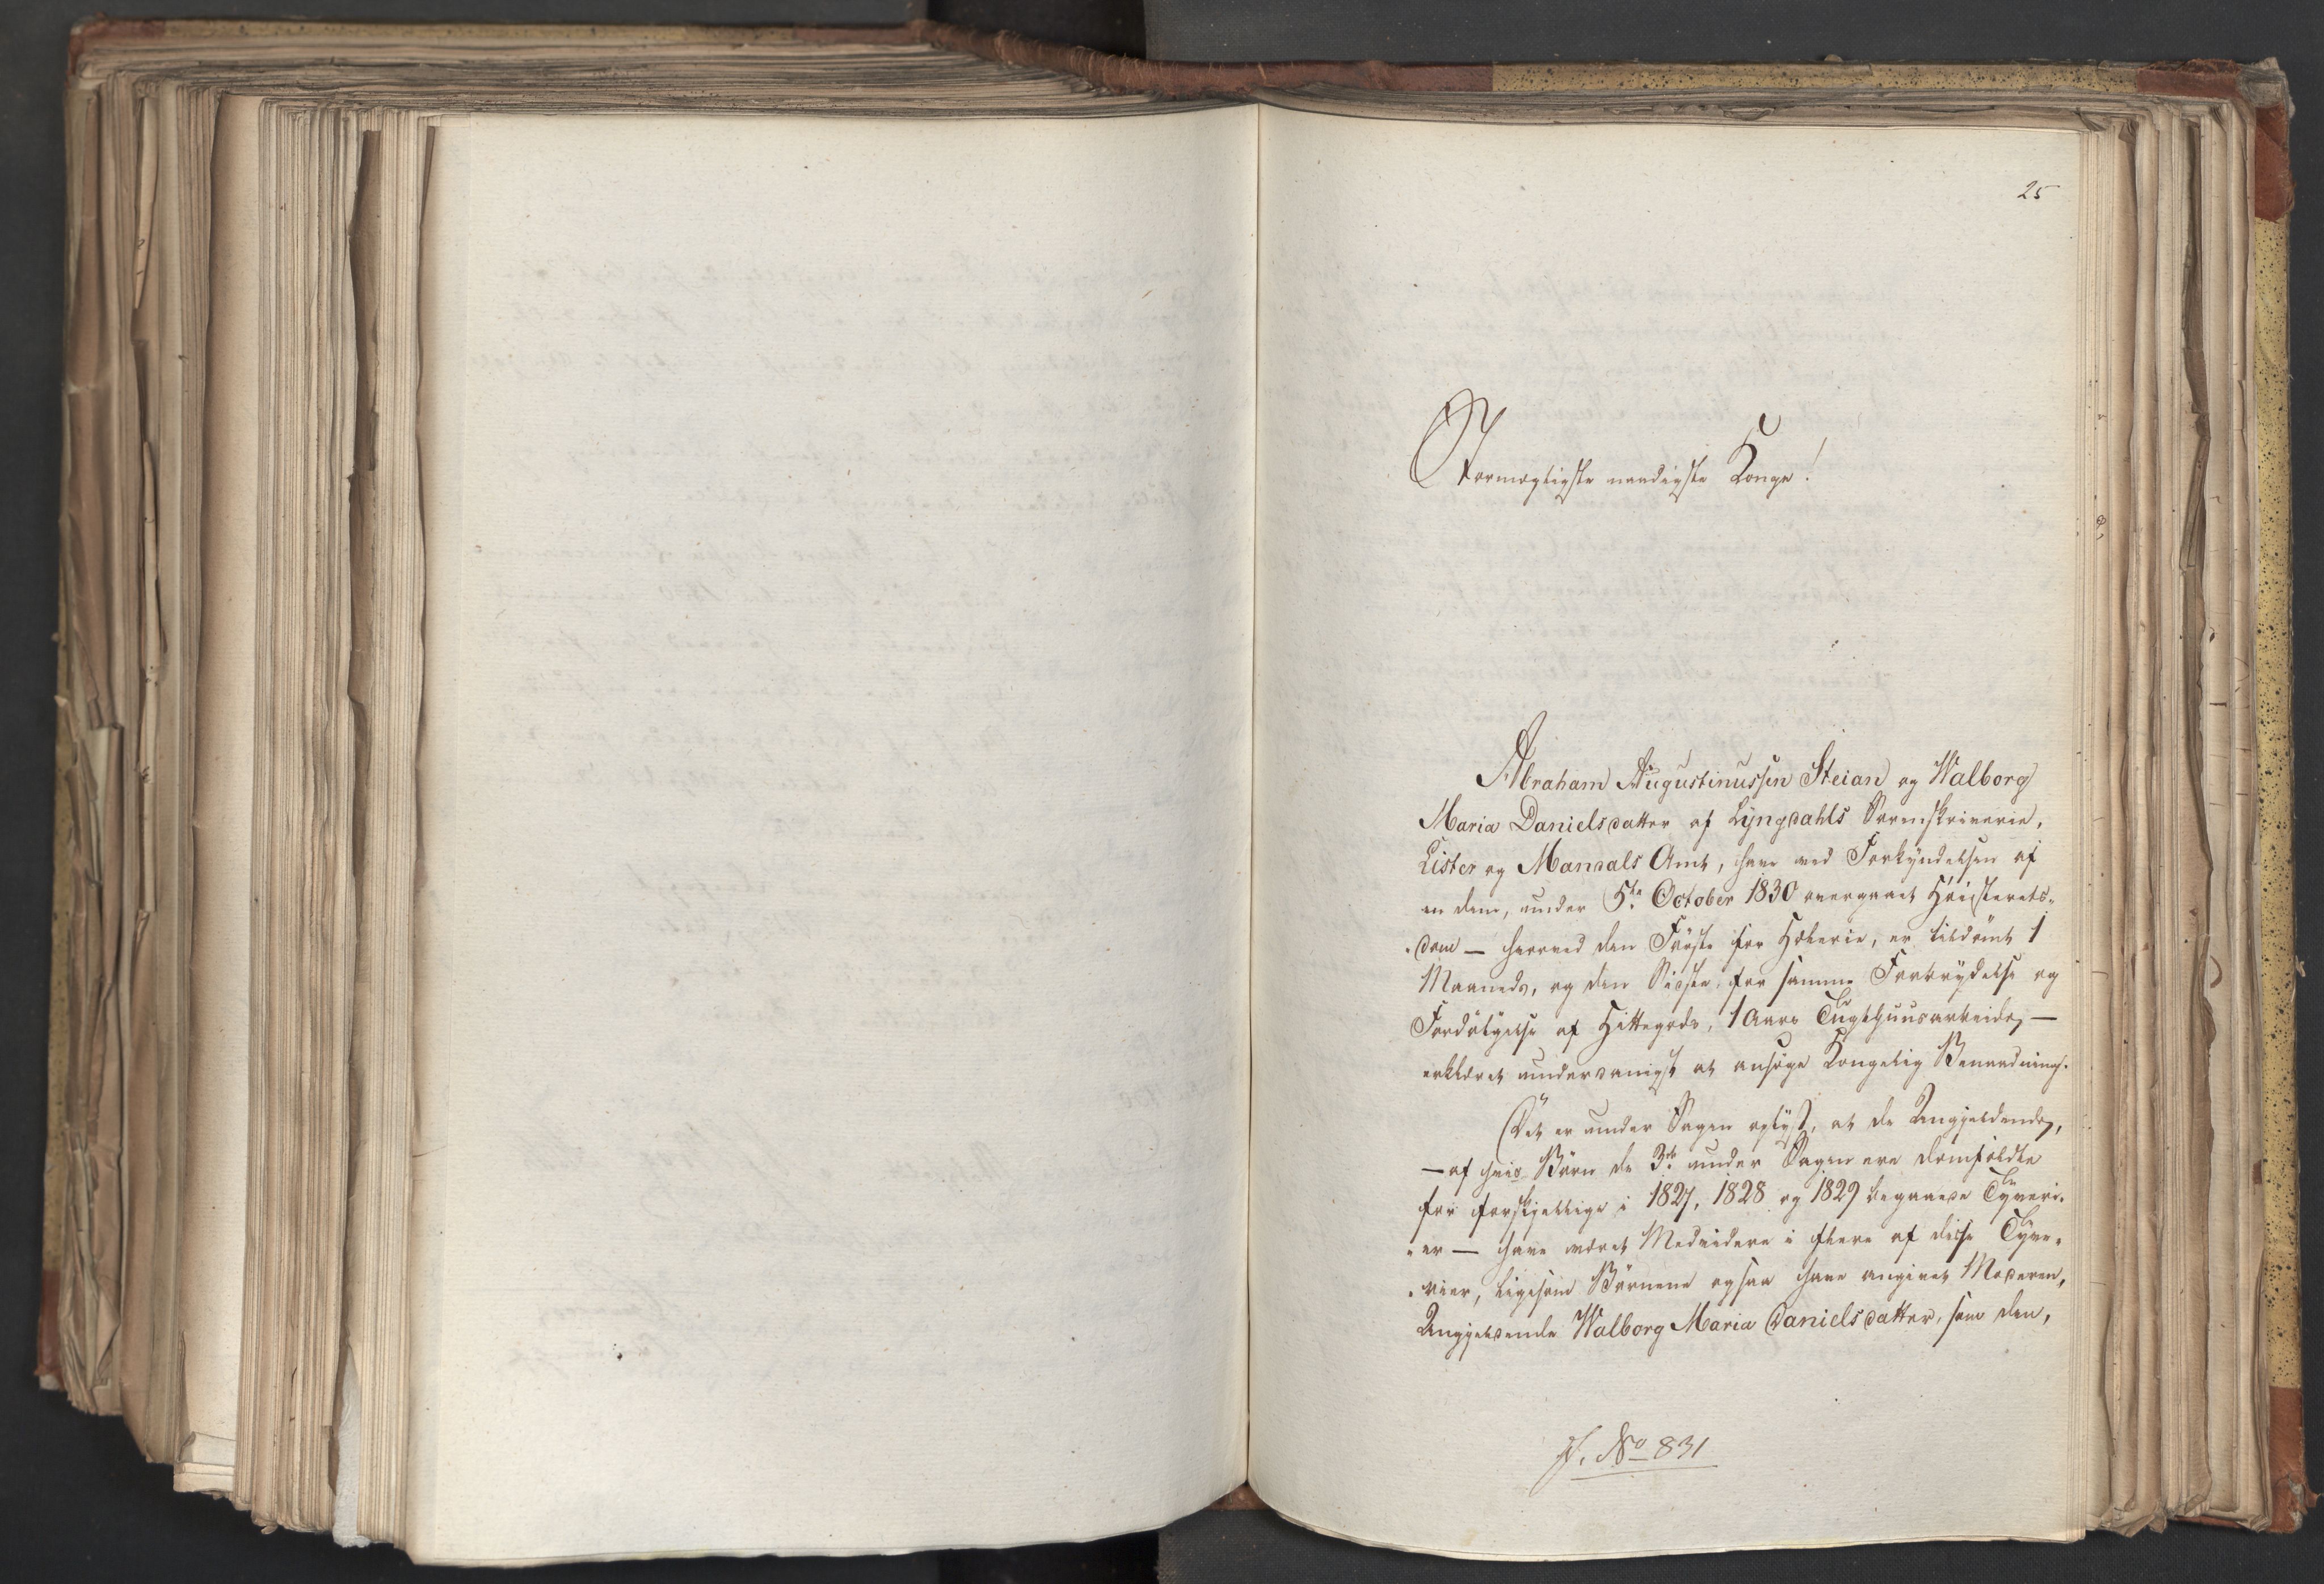 25
Stormægtigste naadigste Konge!
Abraham Augustinussen Steian og Walborg
Maria Danielsdatter af Lyngdahls Sorenskriverie,
Lister og Mandals Amt, have ved Forkyndelsen af
en dem, under 5te October 1830 overgaaet Höiesterets-
-dom — hvorved den Förste for Hæleri, er tildömt 1
Maaneds, og den Sidste, for samme Forbrydelse og
Fordölgelse af Hittegods, 1 Aars Tugthuusarbeide, —
erklæret underdanigst at ansöge Kongelig Benaadning.
Det er under Sagen oplyst, at de Angjeldende,
— af hvis Börn de 3de under Sagen ere domfældte
for forskjellige i 1827, 1828 og 1829 begaaede Tyveri-
-er — have været Medvidere i flere af disse Tyve-
-rier, ligesom Börnene ogsaa have angivet Moderen,
Angjeldende Walborg Maria Danielsdatter, som den,
J. No 831